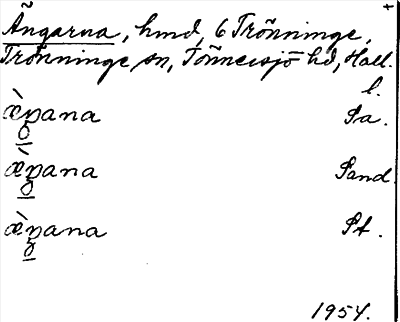 Ängarna, hmd, 6 Trönninge,
Trönninge sn, Tönnersjö hd, Hall.
l.
æ̀ŋana Pa.
æ̀ŋana Pand.
æ̀ŋana Pt.
1954.